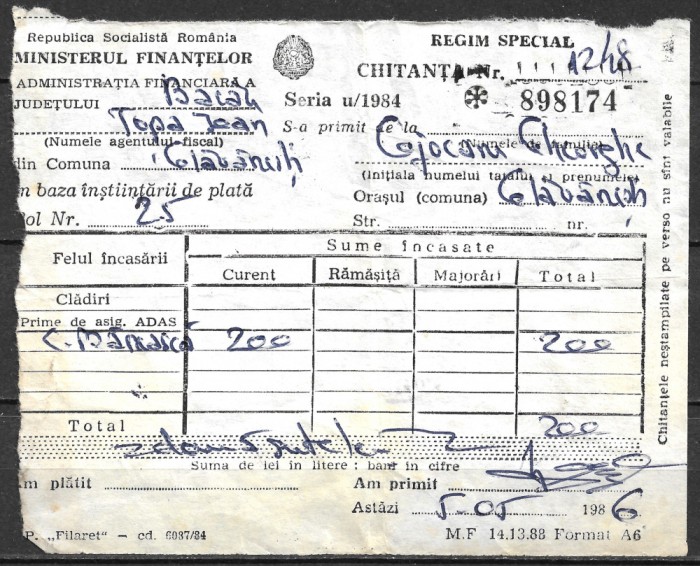 Republica Socialistă România
MINISTERUL FINANȚELOR
ADMINISTRAȚIA FINANCIARĂ A
JUDEȚULUI Bacău
Topa Ioan
(Numele agentului fiscal)
din Comuna Glăvănești
în baza înștiințării de plată
Rol Nr. 25
REGIM SPECIAL
CHITANȚA Nr. 12/48
Seria u/1984 898174
S-a primit de la Cojocaru Gheorghe
(Numele de familie)
(Inițiala numelui tatălui și prenumele)
Orașul (comuna) Glăvănești
Str. nr.
Felul încasării
Sume încasate
Curent Rămășiță Majorări Total
Clădiri
Prime de asig. ADAS
200 200
Total 200
Suma de lei în litere : bani în cifre
Am plătit
Am primit
Astăzi 5-05 1986
I.P. „Filaret" — cd. 6037/84
M.F 14.13.88 Format A6
Chitanțele neștampilate pe verso nu sînt valabile